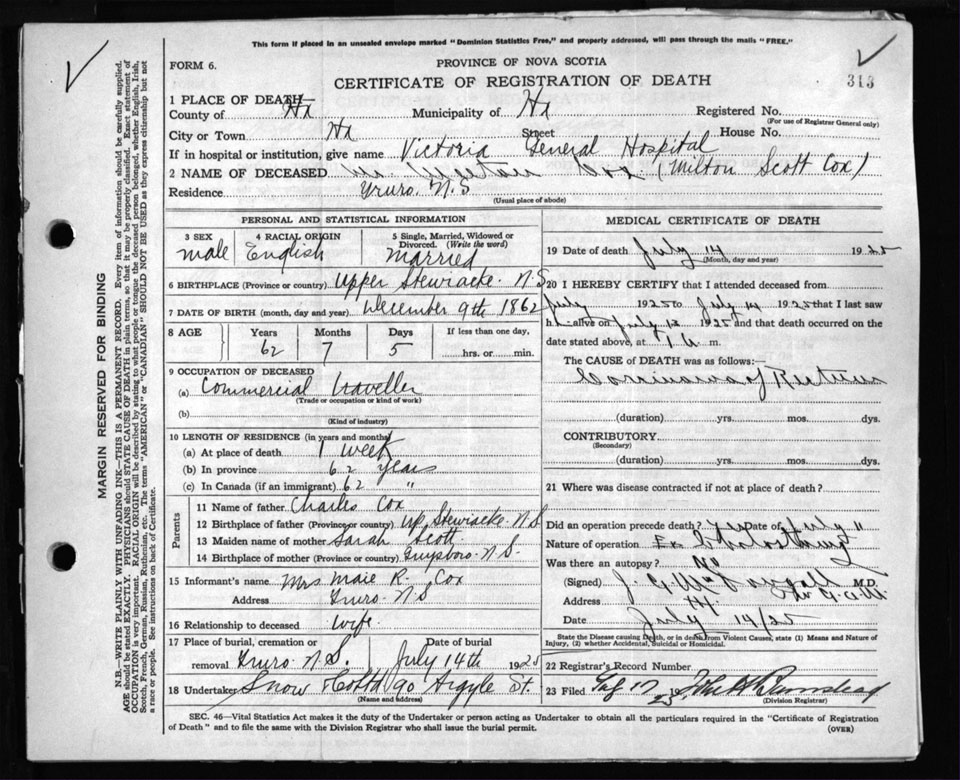 This form if placed in an unsealed envelope marked "Dominion Statistics Free," and properly addressed, will pass through the mails "FREE."
PROVINCE OF NOVA SCOTIA
FORM 6.
CERTIFICATE OF REGISTRATION OF DEATH
313
1 PLACE OF DEATH—
County of Hx Municipality of Hx Registered No.
(For use of Registrar General only)
City or Town Hx Street House No.
If in hospital or institution, give name Victoria General Hospital
2 NAME OF DECEASED Mr. Cox (Milton Scott Cox)
Residence Truro N.S
(Usual place of abode)
PERSONAL AND STATISTICAL INFORMATION
3 SEX 4 RACIAL ORIGIN 5 Single, Married, Widowed or Divorced. (Write the word)
male English Married
6 BIRTHPLACE (Province or country) Upper Stewiacke N.S
7 DATE OF BIRTH (month, day and year) December 9th 1862
8 AGE Years Months Days If less than one day,
62 7 5 hrs. or min.
9 OCCUPATION OF DECEASED
(a) Commercial traveller
(Trade or occupation or kind of work)
(b)
(Kind of industry)
10 LENGTH OF RESIDENCE (in years and months)
(a) At place of death 1 week
(b) In province 62 years
(c) In Canada (if an immigrant) 62 "
Parents
11 Name of father Charles Cox
12 Birthplace of father (Province or country) Up Stewiacke N.S
13 Maiden name of mother Sarah Scott
14 Birthplace of mother (Province or country) Guysboro N.S.
15 Informant's name Mrs Maie R. Cox
Address Truro N.S
16 Relationship to deceased wife
17 Place of burial, cremation or removal Truro N.S. Date of burial July 14th 1925
18 Undertaker Snow & Co Ltd 90 Argyle St.
(Name and address)
MEDICAL CERTIFICATE OF DEATH
19 Date of death July 14 1925
(Month, day and year)
20 I HEREBY CERTIFY that I attended deceased from
July 1925 to July 14 1925 that I last saw
h alive on July 13 1925 and that death occurred on
date stated above, at 1 a m.
The CAUSE OF DEATH was as follows:
Carcinoma of Rectum
(duration) yrs. mos. dys.
CONTRIBUTORY
(Secondary)
(duration) yrs. mos. dys.
21 Where was disease contracted if not at place of death?
Did an operation precede death? Yes Date of July 11
Nature of operation
Was there an autopsy? No
(Signed) J. G. M.D.
Address Hx
Date July 14/25
State the Disease causing Death, or in death from Violent Causes, state (1) Means and Nature of Injury, (2) whether Accidental, Suicidal or Homicidal.
22 Registrar's Record Number
23 Filed 17 25
(Division Registrar)
SEC. 46—Vital Statistics Act makes it the duty of the Undertaker or person acting as Undertaker to obtain all the particulars required in the "Certificate of Registration of Death" and to file the same with the Division Registrar who shall issue the burial permit.
(OVER)
MARGIN RESERVED FOR BINDING
N.B.—WRITE PLAINLY WITH UNFADING INK—THIS IS A PERMANENT RECORD. Every item of information should be carefully supplied.
AGE should be stated EXACTLY. PHYSICIANS should STATE CAUSE OF DEATH in plain terms, so that it may be properly classified. Exact statement of
OCCUPATION is very important. RACIAL ORIGIN will be described by stating to what people or tongue the deceased person belonged, whether English, Irish,
Scotch, French, German, Russian, Ruthenian, etc. The terms "AMERICAN" or "CANADIAN" SHOULD NOT BE USED as they express citizenship but not
a race or people. See instructions on back of Certificate.